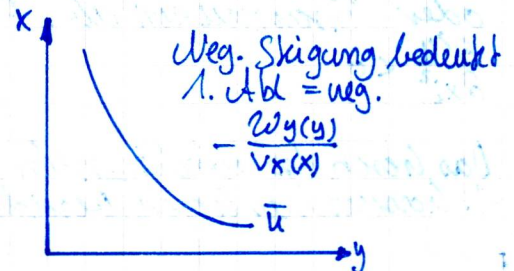 x
Neg. Steigung bedeutet
1. Abl = neg.
- wy(y)
vx(x)
ū
y